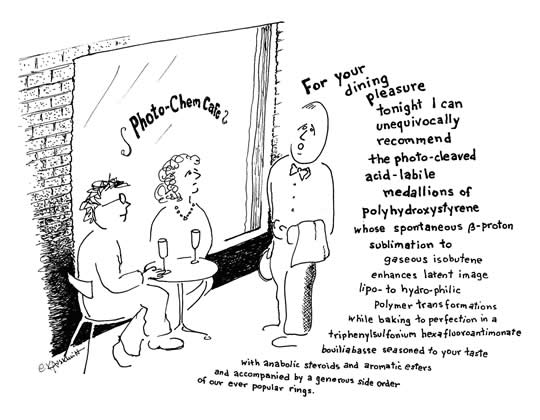 Photo-Chem Cafe
For your
dining
pleasure
tonight I can
unequivocally
recommend
the photo-cleaved
acid-labile
medallions of
polyhydroxystyrene
whose spontaneous β-proton
sublimation to
gaseous isobutene
enhances latent image
lipo- to hydro-philic
Polymer transformations
while baking to perfection in a
triphenylsulfonium hexafluoroantimonate
bouiliabasse seasoned to your taste
with anabolic steroids and aromatic esters
and accompanied by a generous side order
of our ever popular rings.